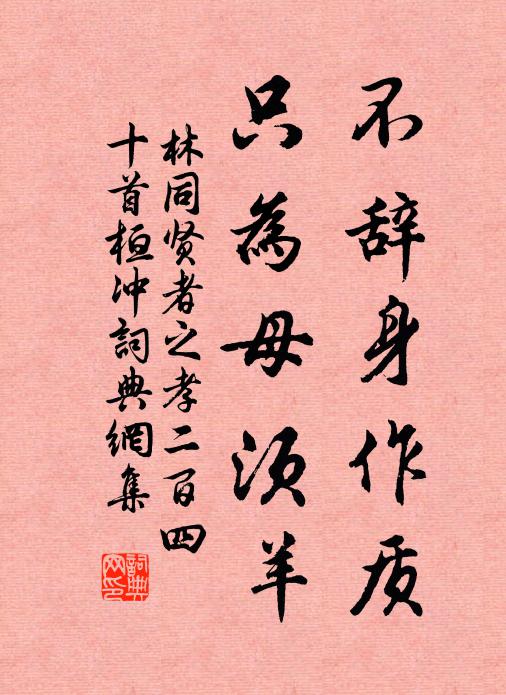 不辞身作质
只為母须羊
林同贤者之孝二百四
十首桓冲詞典網集
詞典網印